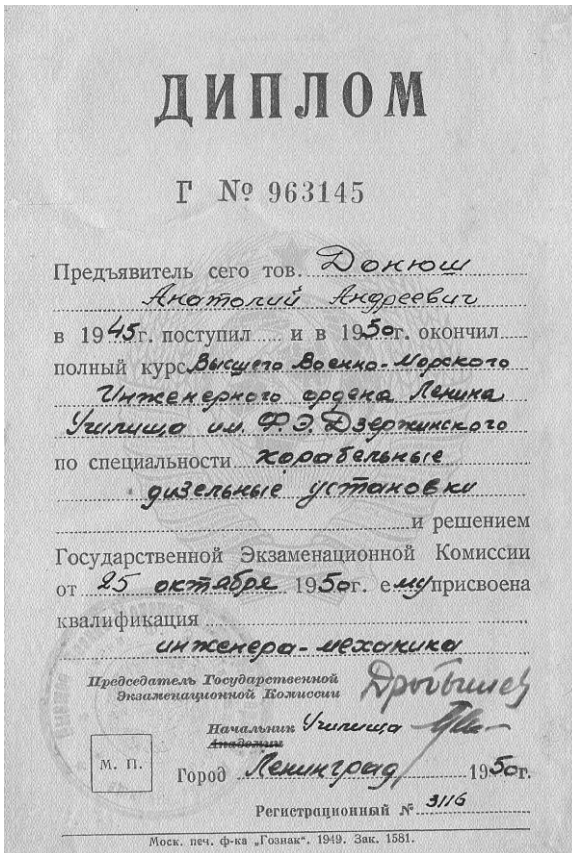 ДИПЛОМ
Г № 963145
Предъявитель сего тов. Донюш
Анатолий Андреевич
в 1945г. поступил и в 1950г. окончил
полный курс Высшего Военно-Морского
Инженерного ордена Ленина
Училища им. Ф.Э. Дзержинского
по специальности корабельные
дизельные установки
и решением
Государственной Экзаменационной Комиссии
от 25 октября 1950г. ему присвоена
квалификация
инженера-механика
Председатель Государственной
Экзаменационной Комиссии
Начальник Училища
Академии
М. П.
Город Ленинград 1950г.
Регистрационный № 3116
Моск. печ. ф-ка „Гознак". 1949. Зак. 1581.